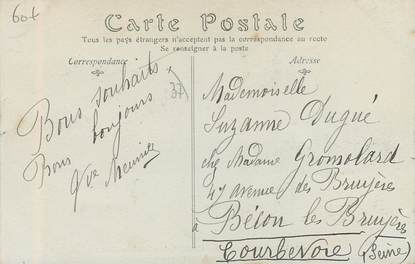 60t
Carte Postale
Tous les pays étrangers n'acceptent pas la correspondance au recto
Se renseigner à la poste
Correspondance
Adresse
Bons souhaits
Bons bonjours
Vve Meunier
37
Mademoiselle
Suzanne Dugué
chez Madame Gromolard
47 avenue des Bruyères
à Bécon les Bruyères
Courbevoie (Seine)